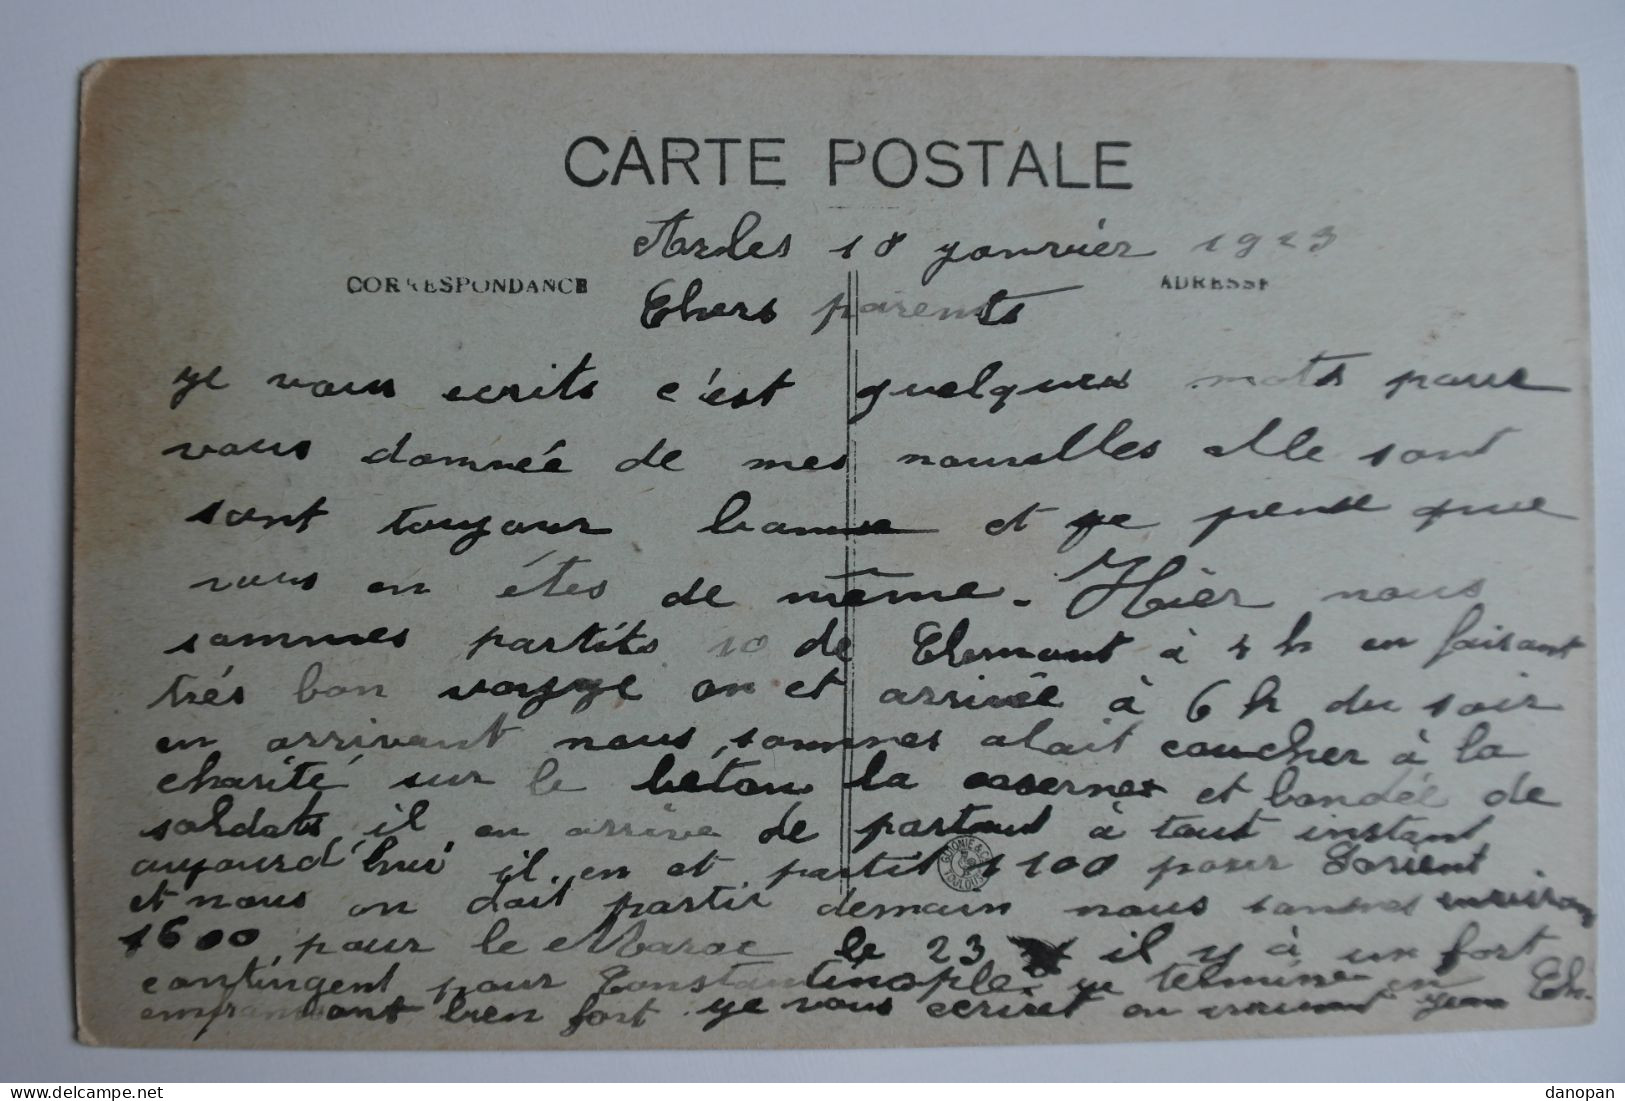 CARTE POSTALE
Arles 18 Janvier 1923
CORRESPONDANCE
ADRESSE
Chers parents
Je vous ecrits c'est quelques mots pour
vous donnée de mes nouvelles elle sont
sont toujour bonne et je pense que
vous en êtes de même. Hièr nous
sommes partits 10 de Clermont à 4 h en faisant
trés bon voyage on et arrivée à 6 h du soir
en arrivant nous sommes alait coucher à la
charité sur le béton la casernes et bondée de
soldats il en arrive de partout à tout instant
aujourd'hui il en et partit 1100 pour Lorient
et nous on doit partir demain nous sommes environ
1600 pour le Maroc le 23 il y à un fort
contingent pour Constantinople. je termine en
bien fort je vous ecriret en
GUIONIE & C
TOULOUSE
danopan for Delcampe.net